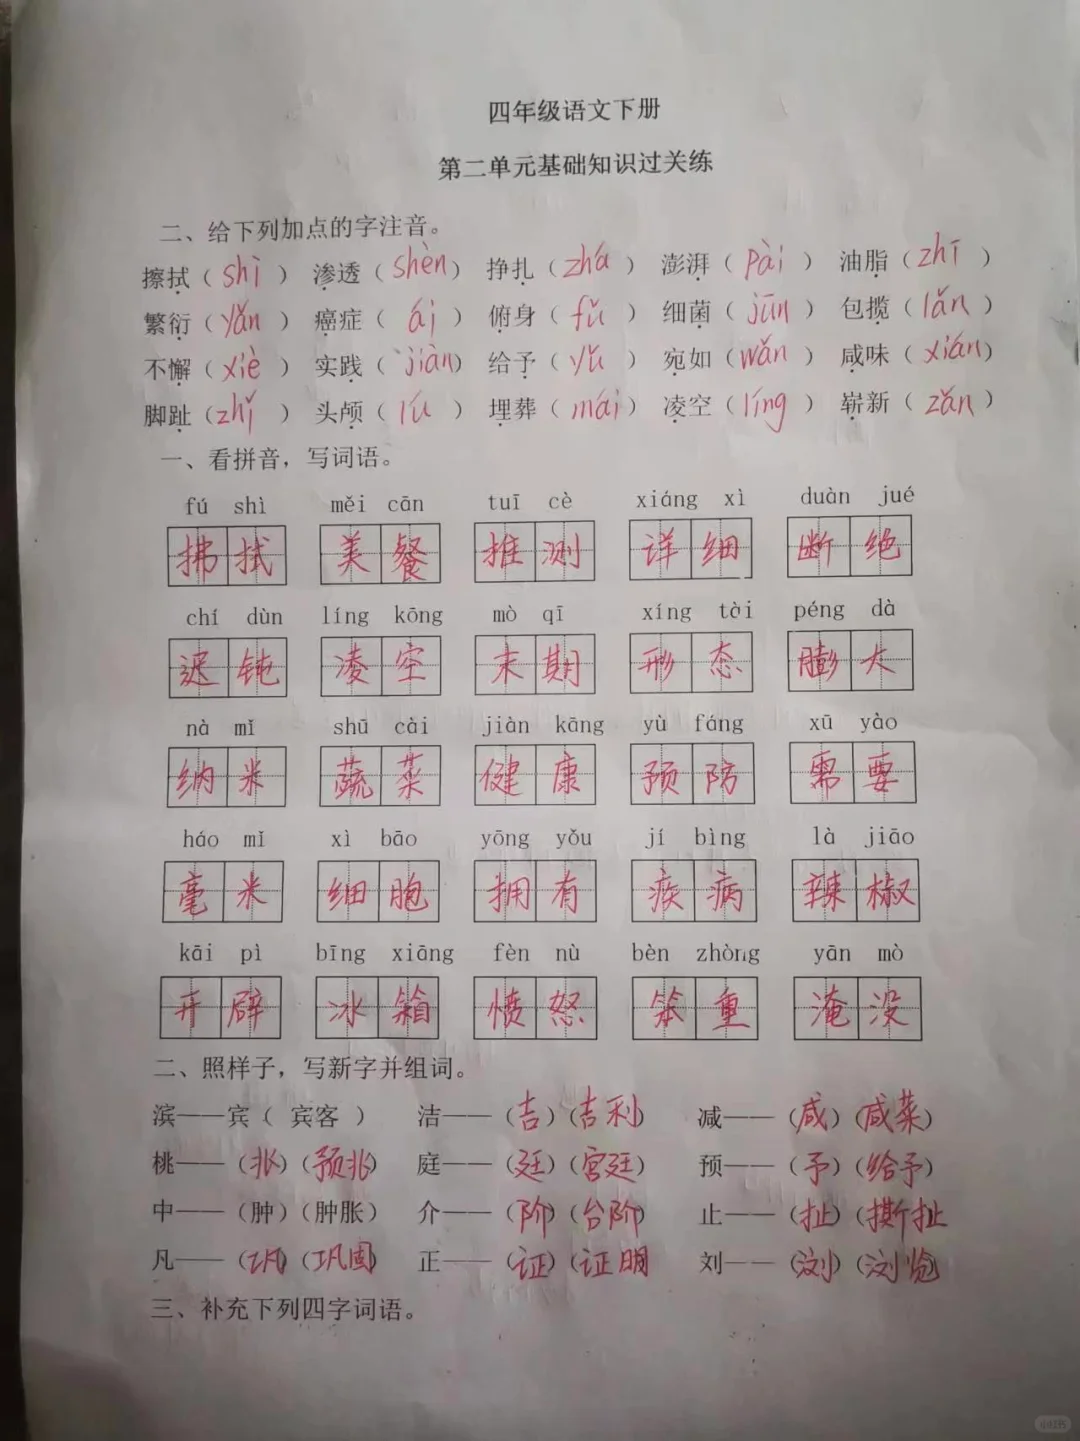 四年级语文下册
第二单元基础知识过关练
二、给下列加点的字注音。
擦拭（shì） 渗透（shèn） 挣扎（zhá） 澎湃（pài） 油脂（zhī）
繁衍（yǎn） 癌症（ái） 俯身（fǔ） 细菌（jūn） 包揽（lǎn）
不懈（xiè） 实践（jiàn） 给予（yǔ） 宛如（wǎn） 咸味（xián）
脚趾（zhǐ） 头颅（lú） 埋葬（mái） 凌空（líng） 崭新（zǎn）
一、看拼音，写词语。
fú shì měi cān tuī cè xiáng xì duàn jué
拂拭 美餐 推测 详细 断绝
chí dùn líng kōng mò qī xíng tài péng dà
迟钝 凌空 末期 形态 膨大
nà mǐ shū cài jiàn kāng yù fáng xū yào
纳米 蔬菜 健康 预防 需要
háo mǐ xì bāo yōng yǒu jí bìng là jiāo
毫米 细胞 拥有 疾病 辣椒
kāi pì bīng xiāng fèn nù bèn zhòng yān mò
开辟 冰箱 愤怒 笨重 淹没
二、照样子，写新字并组词。
滨——宾（宾客） 洁——（吉）（吉利） 减——（咸）（咸菜）
桃——（兆）（预兆） 庭——（廷）（宫廷） 预——（予）（给予）
中——（肿）（肿胀） 介——（阶）（台阶） 止——（扯）（撕扯
凡——（巩）（巩固） 正——（证）（证明 刘——（浏）（浏览
三、补充下列四字词语。